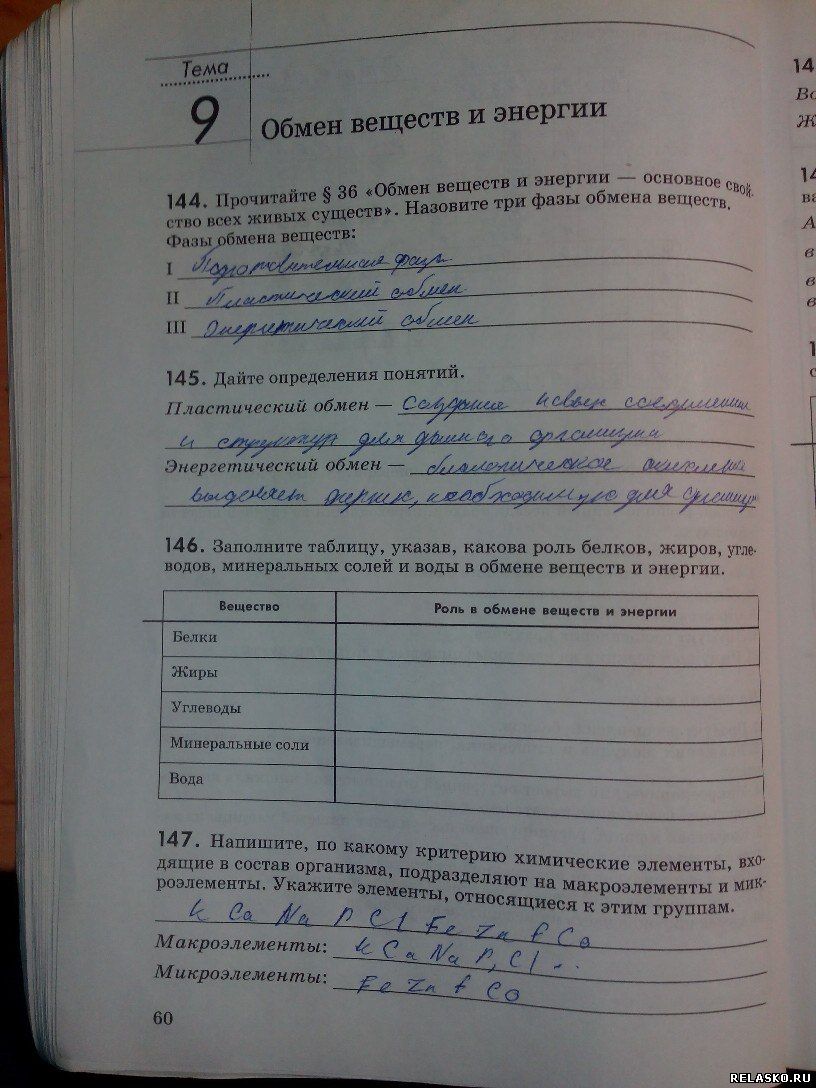 Тема
9
Обмен веществ и энергии
144. Прочитайте § 36 «Обмен веществ и энергии — основное свой-
ство всех живых существ». Назовите три фазы обмена веществ.
Фазы обмена веществ:
I Подготовительная фаза
II Пластический обмен
III Энергетический обмен
145. Дайте определения понятий.
Пластический обмен — создание новых соединений
и структур для данного организма
Энергетический обмен — биологическое окисление
выделяет энергию, необходимую для
146. Заполните таблицу, указав, какова роль белков, жиров, угле-
водов, минеральных солей и воды в обмене веществ и энергии.
Вещество Роль в обмене веществ и энергии
Белки
Жиры
Углеводы
Минеральные соли
Вода
147. Напишите, по какому критерию химические элементы, вхо-
дящие в состав организма, подразделяют на макроэлементы и мик-
роэлементы. Укажите элементы, относящиеся к этим группам.
K Ca Na P Cl Fe Zn f Co
Макроэлементы: K Ca Na P, Cl ..
Микроэлементы: Fe Zn f Co
60
14
Вс
Ж
14
ва
А
в
в
в
1
с
RELASKO.RU